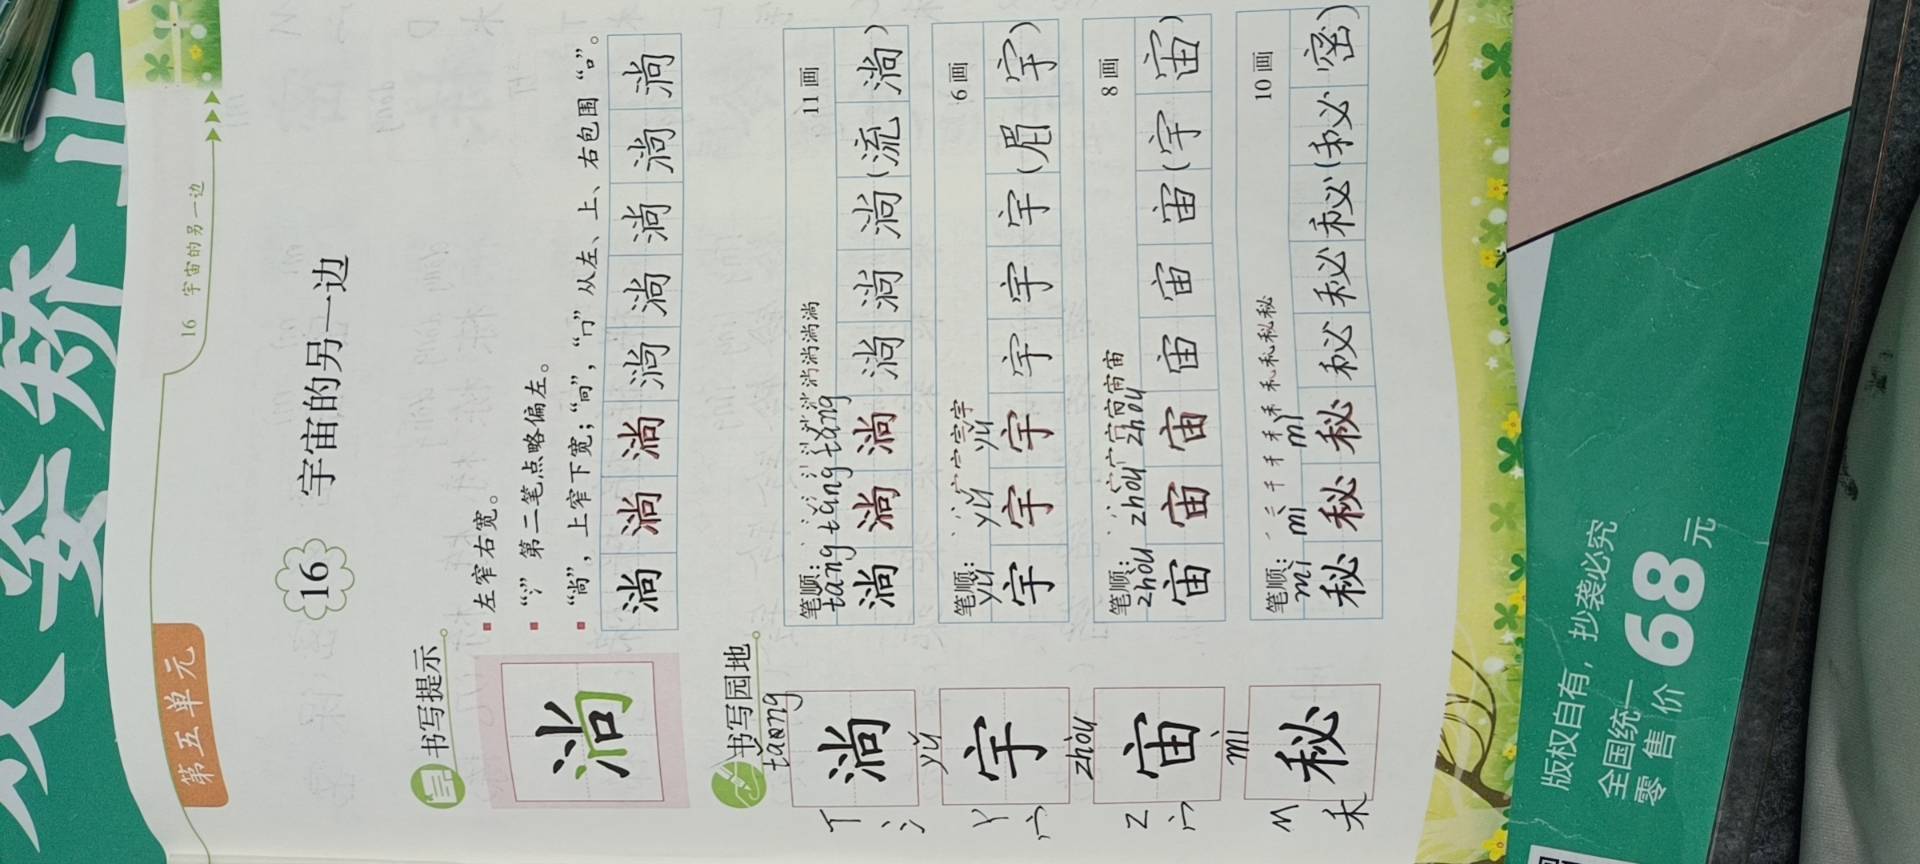 16 宇宙的另一边
第五单元
16 宇宙的另一边
书写提示
左窄右宽。
“氵”第二笔点略偏左。
“尚”，上窄下宽；“尚”，“冂”从左、上、右包围“口”。
淌
淌 淌 淌 淌 淌 淌 淌 淌
书写园地
tǎng
淌
T
氵
笔顺： 11画
tǎng tǎng tǎng
淌 淌 淌 淌 淌 淌（流 淌）
yǔ
宇
Y
宀
笔顺： 6画
yǔ yǔ yǔ
宇 宇 宇 宇 宇 宇（眉 宇）
zhòu
宙
Z
宀
笔顺： 8画
zhòu zhòu zhòu
宙 宙 宙 宙 宙 宙（宇 宙）
mì
秘
M
禾
笔顺： 10画
mì mì mì
秘 秘 秘 秘 秘 秘（秘 密）
版权自有，抄袭必究
全国统一
零售价 68元